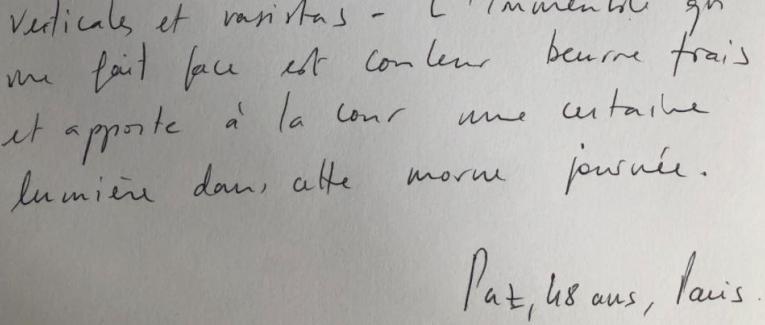 verticales et vasistas - L'immeuble qui
me fait face est couleur beurre frais
et apporte à la cour une certaine
lumière dans cette morne journée.
Paz, 48 ans, Paris.